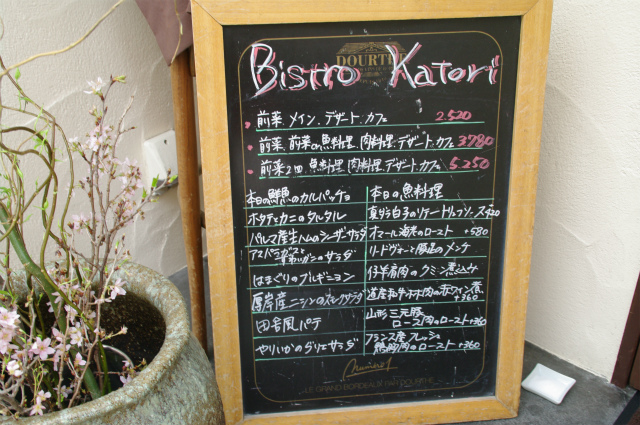 DOURTHE
Bistro Katori
前菜.メイン.デザート.カフェ 2.520
前菜.前菜の魚料理.肉料理.デザート.カフェ 3780
前菜2皿.魚料理.肉料理.デザート.カフェ 5.250
本日の鮮魚のカルパッチョ
ホタテとカニのタルタル
パルマ産生ハムのシーザーサラダ
アスパラガスと サラダ
はまぐりのブルギニョン
厚岸産ニシンのスモークサラダ
田舎風パテ
やりいかのグリエサラダ
本日の魚料理
真ダラ白子のソテー トリュフソース +420
オマール海老のロースト +580
リードヴォーと のメンチ
仔羊肩肉のクミン煮込み
道産和牛ホホ肉の赤ワイン煮 +360
山形三元豚 ロース肉のロースト +360
フランス産フレッシュ 鴨胸肉のロースト +360
Numéro 1
LE GRAND BORDEAUX DE DOURTHE